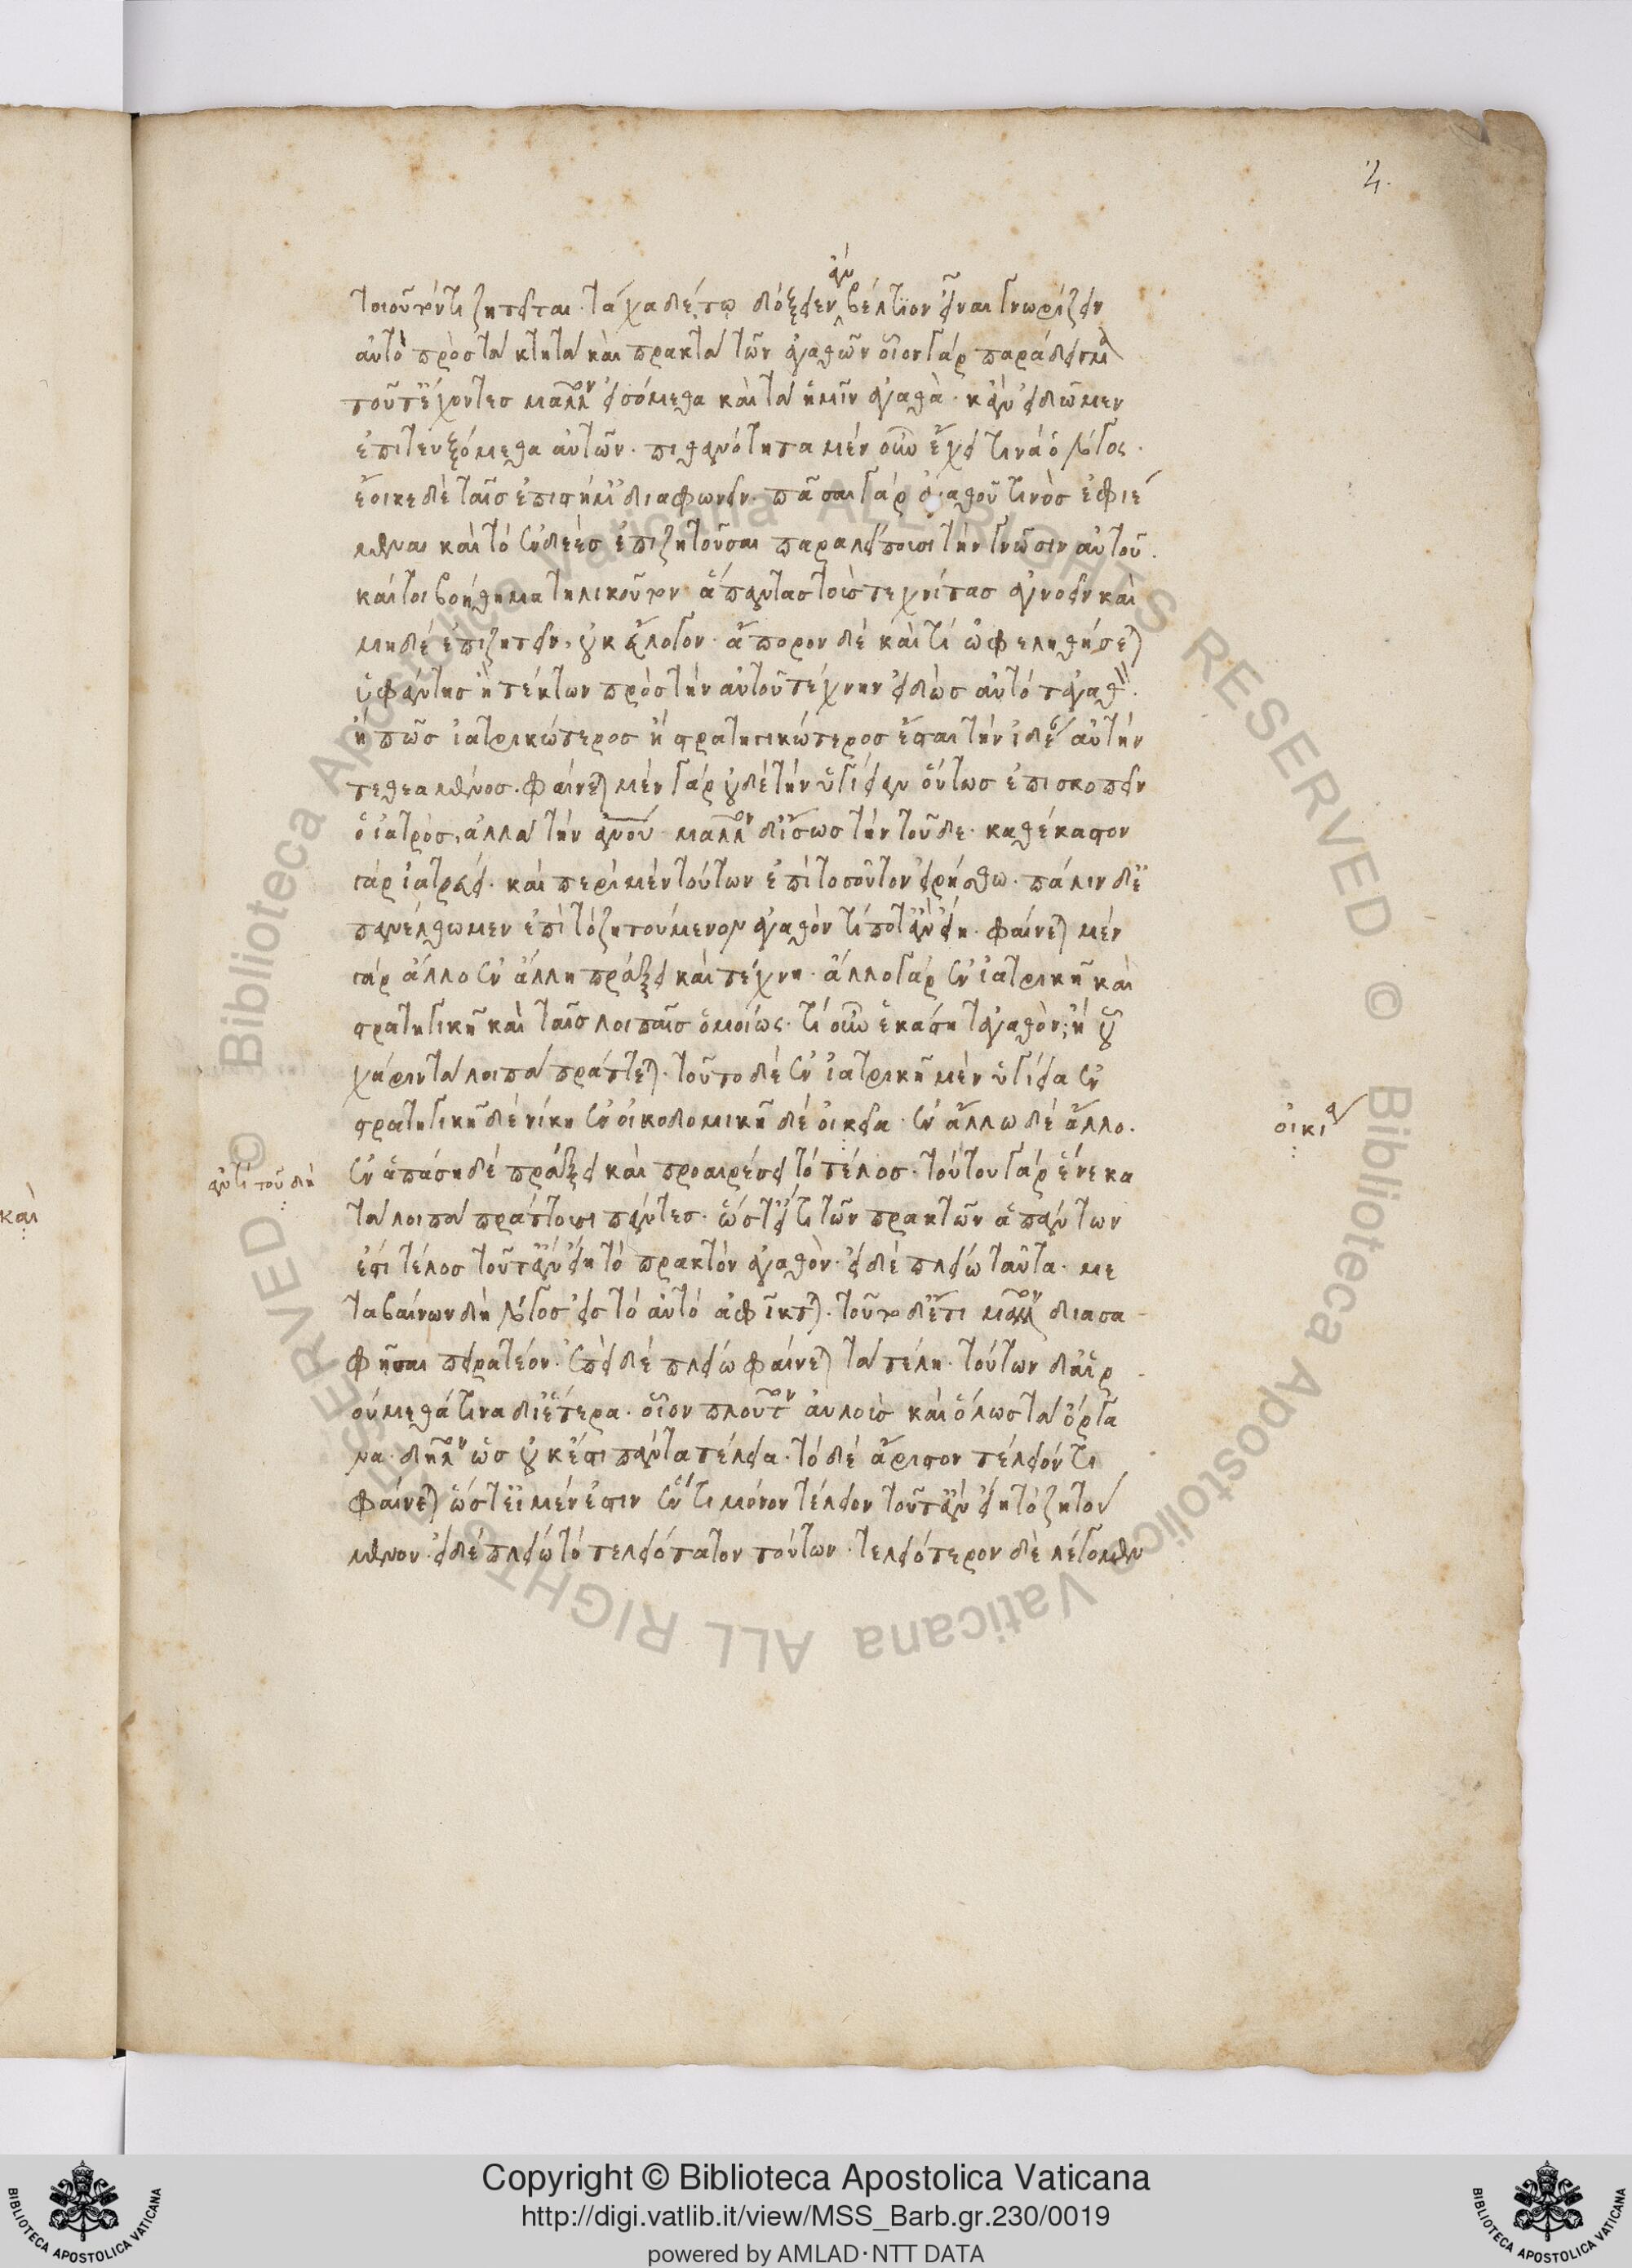 4.
τοιοῦτόν τι ζητεῖται· τάχα δέ τῳ δόξειεν ἂν βέλτιον εἶναι γνωρίζειν
αὐτὸ πρὸς τὰ κτητὰ καὶ πρακτὰ τῶν ἀγαθῶν οἷον γὰρ παράδειγμα
τοῦτ' ἔχοντες μᾶλλον εἰσόμεθα καὶ τὰ ἡμῖν ἀγαθὰ· κἂν εἰδῶμεν
ἐπιτευξόμεθα αὐτῶν· πιθανότητα μὲν οὖν ἔχει τινὰ ὁ λόγος·
ἔοικε δὲ ταῖς ἐπιστήμαις διαφωνεῖν· πᾶσαι γὰρ ἀγαθοῦ τινὸς ἐφιέ
μεναι καὶ τὸ ἐνδεὲς ἐπιζητοῦσαι παραλείπουσι τὴν γνῶσιν αὐτοῦ·
καίτοι βοήθημα τηλικοῦτον ἅπαντας τοὺς τεχνίτας ἀγνοεῖν καὶ
μηδὲ ἐπιζητεῖν, οὐκ εὔλογον· ἄπορον δὲ καὶ τί ὠφεληθήσεται
ὑφάντης ἢ τέκτων πρὸς τὴν αὐτοῦ τέχνην εἰδὼς αὐτὸ τἀγαθόν·
ἢ πῶς ἰατρικώτερος ἢ στρατηγικώτερος ἔσται τὴν ἰδέαν αὐτὴν
τεθεαμένος· φαίνεται μὲν γὰρ οὐδὲ τὴν ὑγίειαν οὕτως ἐπισκοπεῖν
ὁ ἰατρός, ἀλλὰ τὴν ἀνου· μᾶλλον δ' ἴσως τὴν τοῦδε· καθ' ἕκαστον
γὰρ ἰατρεύει· καὶ περὶ μὲν τούτων ἐπὶ τοσοῦτον εἰρήσθω· πάλιν δ' ἐ
πανέλθωμεν ἐπὶ τὸ ζητούμενον ἀγαθὸν τί ποτ' ἂν εἴη· φαίνεται μὲν
γὰρ ἄλλο ἐν ἄλλη πράξει καὶ τέχνη· ἄλλο γὰρ ἐν ἰατρικῆ καὶ
στρατηγικῆ καὶ ταῖς λοιπαῖς ὁμοίως· τί οὖν ἑκάστη τἀγαθὸν; ἢ οὗ
χάριν τὰ λοιπὰ πράττεται· τοῦτο δὲ ἐν ἰατρικῆ μὲν ὑγίεια ἐν
στρατηγικῆ δὲ νίκη ἐν οἰκοδομικῆ δὲ οἰκεία· ἐν ἄλλω δὲ ἄλλο·
οἰκία
ἀντὶ τοῦ δὴ
ἐν ἁπάση δὲ πράξει καὶ προαιρέσει τὸ τέλος· τούτου γὰρ ἕνεκα
τὰ λοιπὰ πράττουσι πάντες· ὥστ' εἴ τι τῶν πρακτῶν ἁπάντων
ἐστὶ τέλος τοῦτ' ἂν εἴη τὸ πρακτὸν ἀγαθὸν· εἰ δὲ πλείω ταῦτα· με
ταβαίνων δὴ λόγος εἰς τὸ αὐτὸ ἀφῖκται· τοῦτο δ' ἔτι μᾶλλον διασα-
φῆσαι πειρατέον· ἐπεὶ δὲ πλείω φαίνεται τὰ τέλη· τούτων δ' αἱρ-
ούμεθά τινα δι' ἕτερα· οἷον πλοῦτον αὐλοὺς καὶ ὅλως τὰ ὄργα
να· δῆλον ὡς οὐκ ἔστι πάντα τέλεια· τὸ δὲ ἄριστον τέλειόν τι
φαίνεται ὥστ' εἰ μέν ἐστιν ἕν τι μόνον τέλειον τοῦτ' ἂν εἴη τὸ ζητού
μενον· εἰ δὲ πλείω τὸ τελειότατον τούτων· τελειότερον δὲ λέγομεν
καὶ
© Biblioteca Apostolica Vaticana ALL RIGHTS RESERVED © Biblioteca Apostolica Vaticana ALL RIGHTS RESERVED
BIBLIOTECA APOSTOLICA VATICANA
Copyright © Biblioteca Apostolica Vaticana
http://digi.vatlib.it/view/MSS_Barb.gr.230/0019
powered by AMLAD·NTT DATA
BIBLIOTECA APOSTOLICA VATICANA